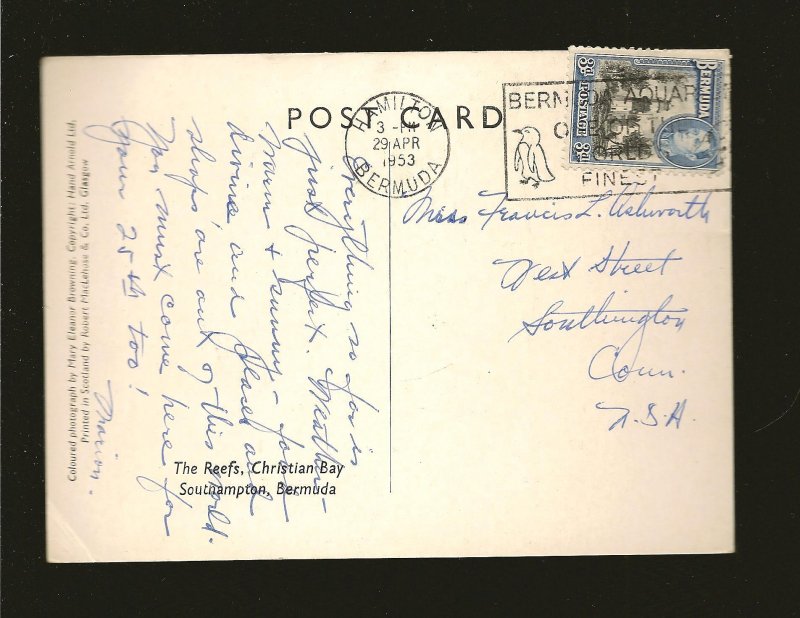 POST CARD
HAMILTON
3 - PM
29 APR
1953
BERMUDA
BERMUDA AQUAR
FINEST
BERMUDA
3d POSTAGE 3d
Miss Francis L. Ashworth
West Street
Southington
Conn.
U.S.A.
Everything so far is
just perfect. Weather-
warm + sunny - food
divine and places and
shops are out of this world.
You must come here for
your 25th too!
Marion.
The Reefs, Christian Bay
Southampton, Bermuda
Coloured photograph by Mary Eleanor Browning. Copyright: Hand Arnold Ltd.
Printed in Scotland by Robert MacLehose & Co. Ltd. Glasgow